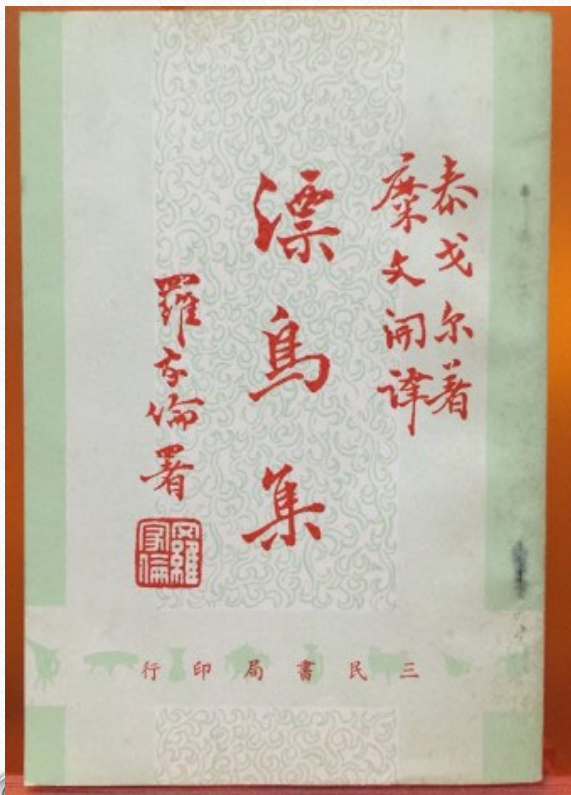 泰戈尔著
糜文開譯
漂鳥集
羅家倫署
羅家倫
三民書局印行